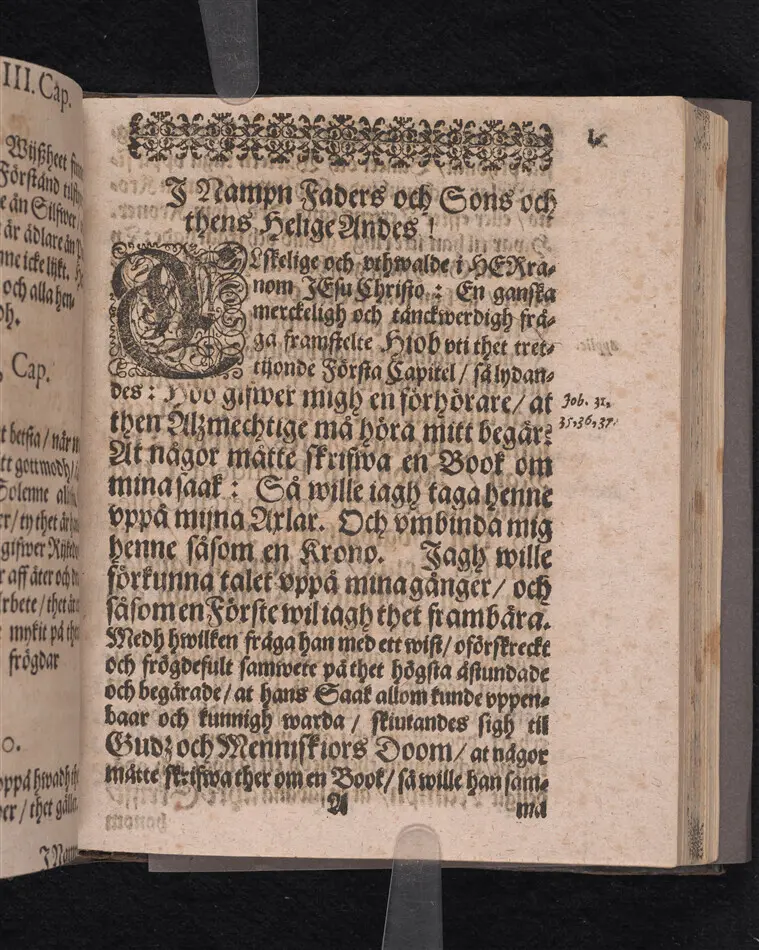 III. Cap.
Wijßheet
Förstånd
än Silfwer
är ädlare än
icke lijkt.
och alla
Cap.
betsta / når
gott modh /
Solenne
/ ty thet är
gifwer
aff åter och
Arbete / thet
mykit på
frögdar
oppå hwadh
/ thet gäller
1.
J Nampn Faders och Sons och
thens Helige Andes !
ELskelige och vthwalde i HERra-
nom JEsu Christo : En ganska
merckeligh och tänckwerdigh frå-
ga framstelte Hiob vti thet tret-
tijonde Första Capitel / så lydan-
des : Hoo gifwer migh en förhörare / at
then Alzmechtige må höra mitt begär ?
At någor måtte skrifwa en Book om
mina saak : Så wille iagh taga henne
vppå mijna Axlar. Och vmbinda mig
henne såsom en Krono. Jagh wille
förkunna talet vppå mina gånger / och
såsom en Förste wil iagh thet frambära.
Medh hwilken fråga han med ett wist / oförskreckt
och frögdefult samwete på thet högsta åstundade
och begärade / at hans Saak allom kunde vppen-
baar och kunnigh warda / skiutandes sigh til
Gudz och Menniskiors Doom / at någor
måtte skrifwa ther om en Book / så wille han sam-
A
ma
Job. 31,
35,36,37.